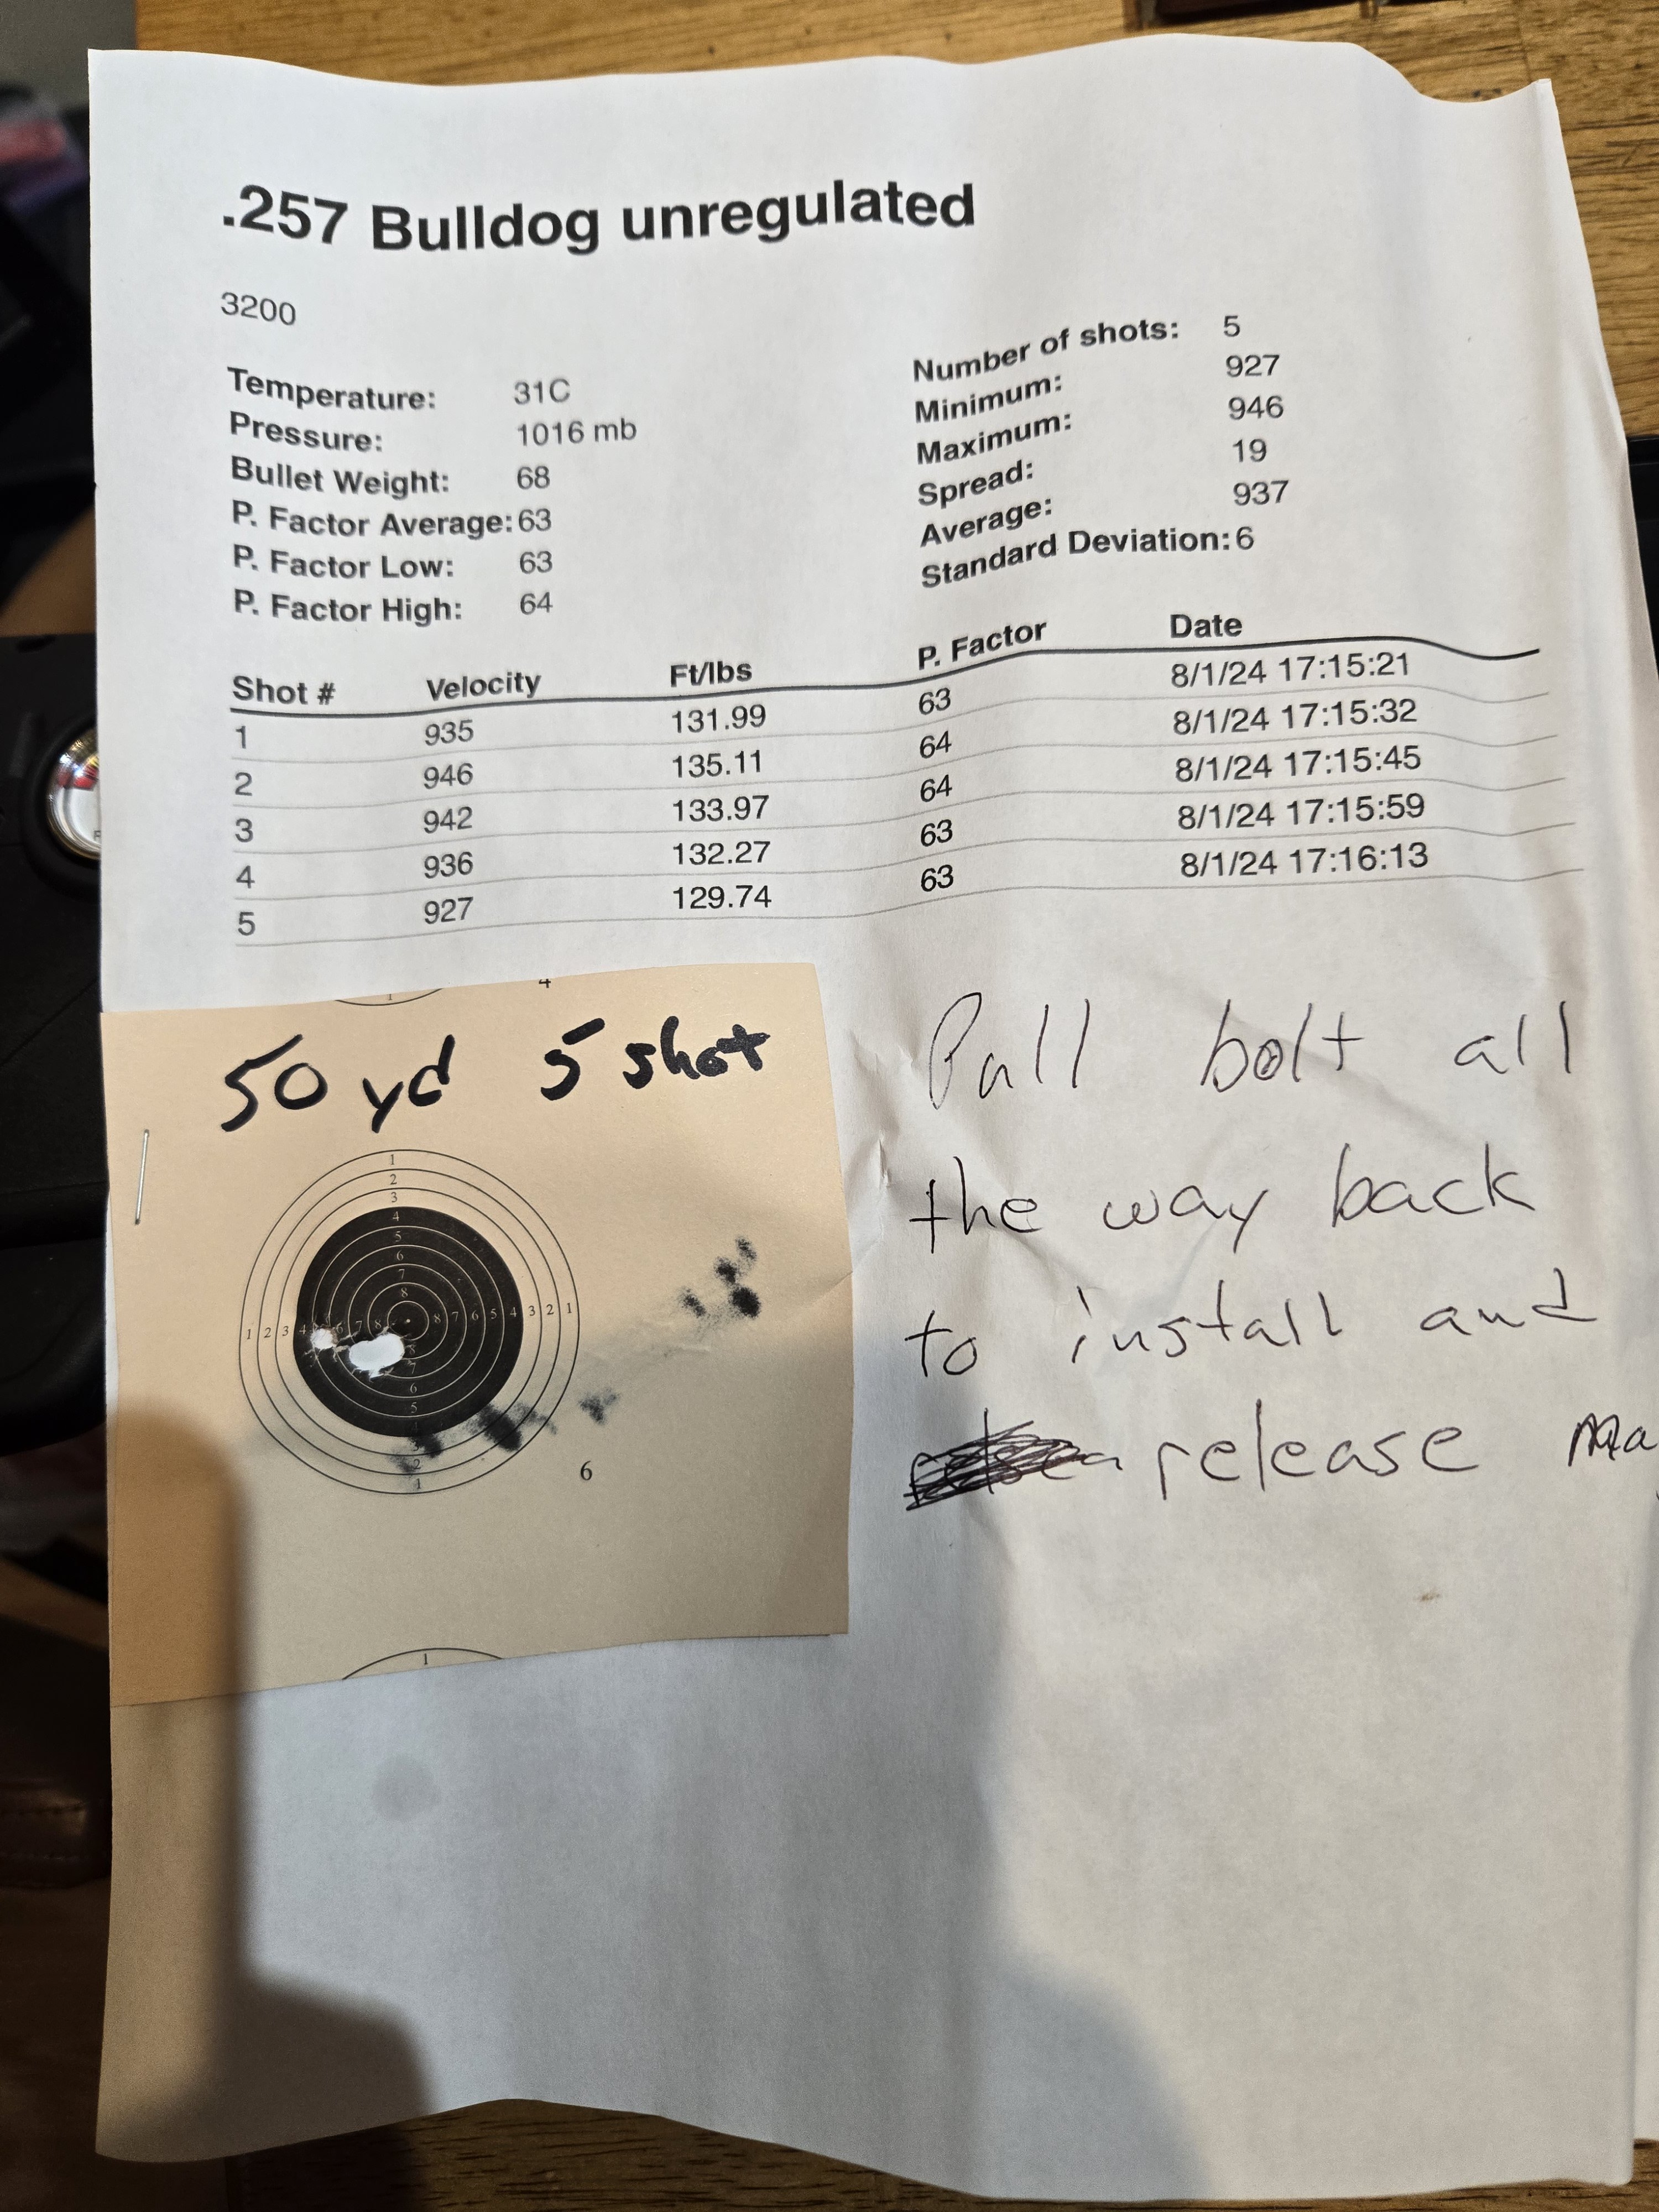 .257 Bulldog unregulated
3200
Temperature: 31C
Pressure: 1016 mb
Bullet Weight: 68
P. Factor Average: 63
P. Factor Low: 63
P. Factor High: 64
Number of shots: 5
Minimum: 927
Maximum: 946
Spread: 19
Average: 937
Standard Deviation: 6
Shot # Velocity Ft/lbs P. Factor Date
1 935 131.99 63 8/1/24 17:15:21
2 946 135.11 64 8/1/24 17:15:32
3 942 133.97 64 8/1/24 17:15:45
4 936 132.27 63 8/1/24 17:15:59
5 927 129.74 63 8/1/24 17:16:13
1
4
50 yd 5 shot
1
2
3
4
5
6
7
8
1 2 3 4 6 7 8 8 7 6 5 4 3 2 1
8
7
6
5
2
1
6
1
Pull bolt all
the way back
to install and
release ma